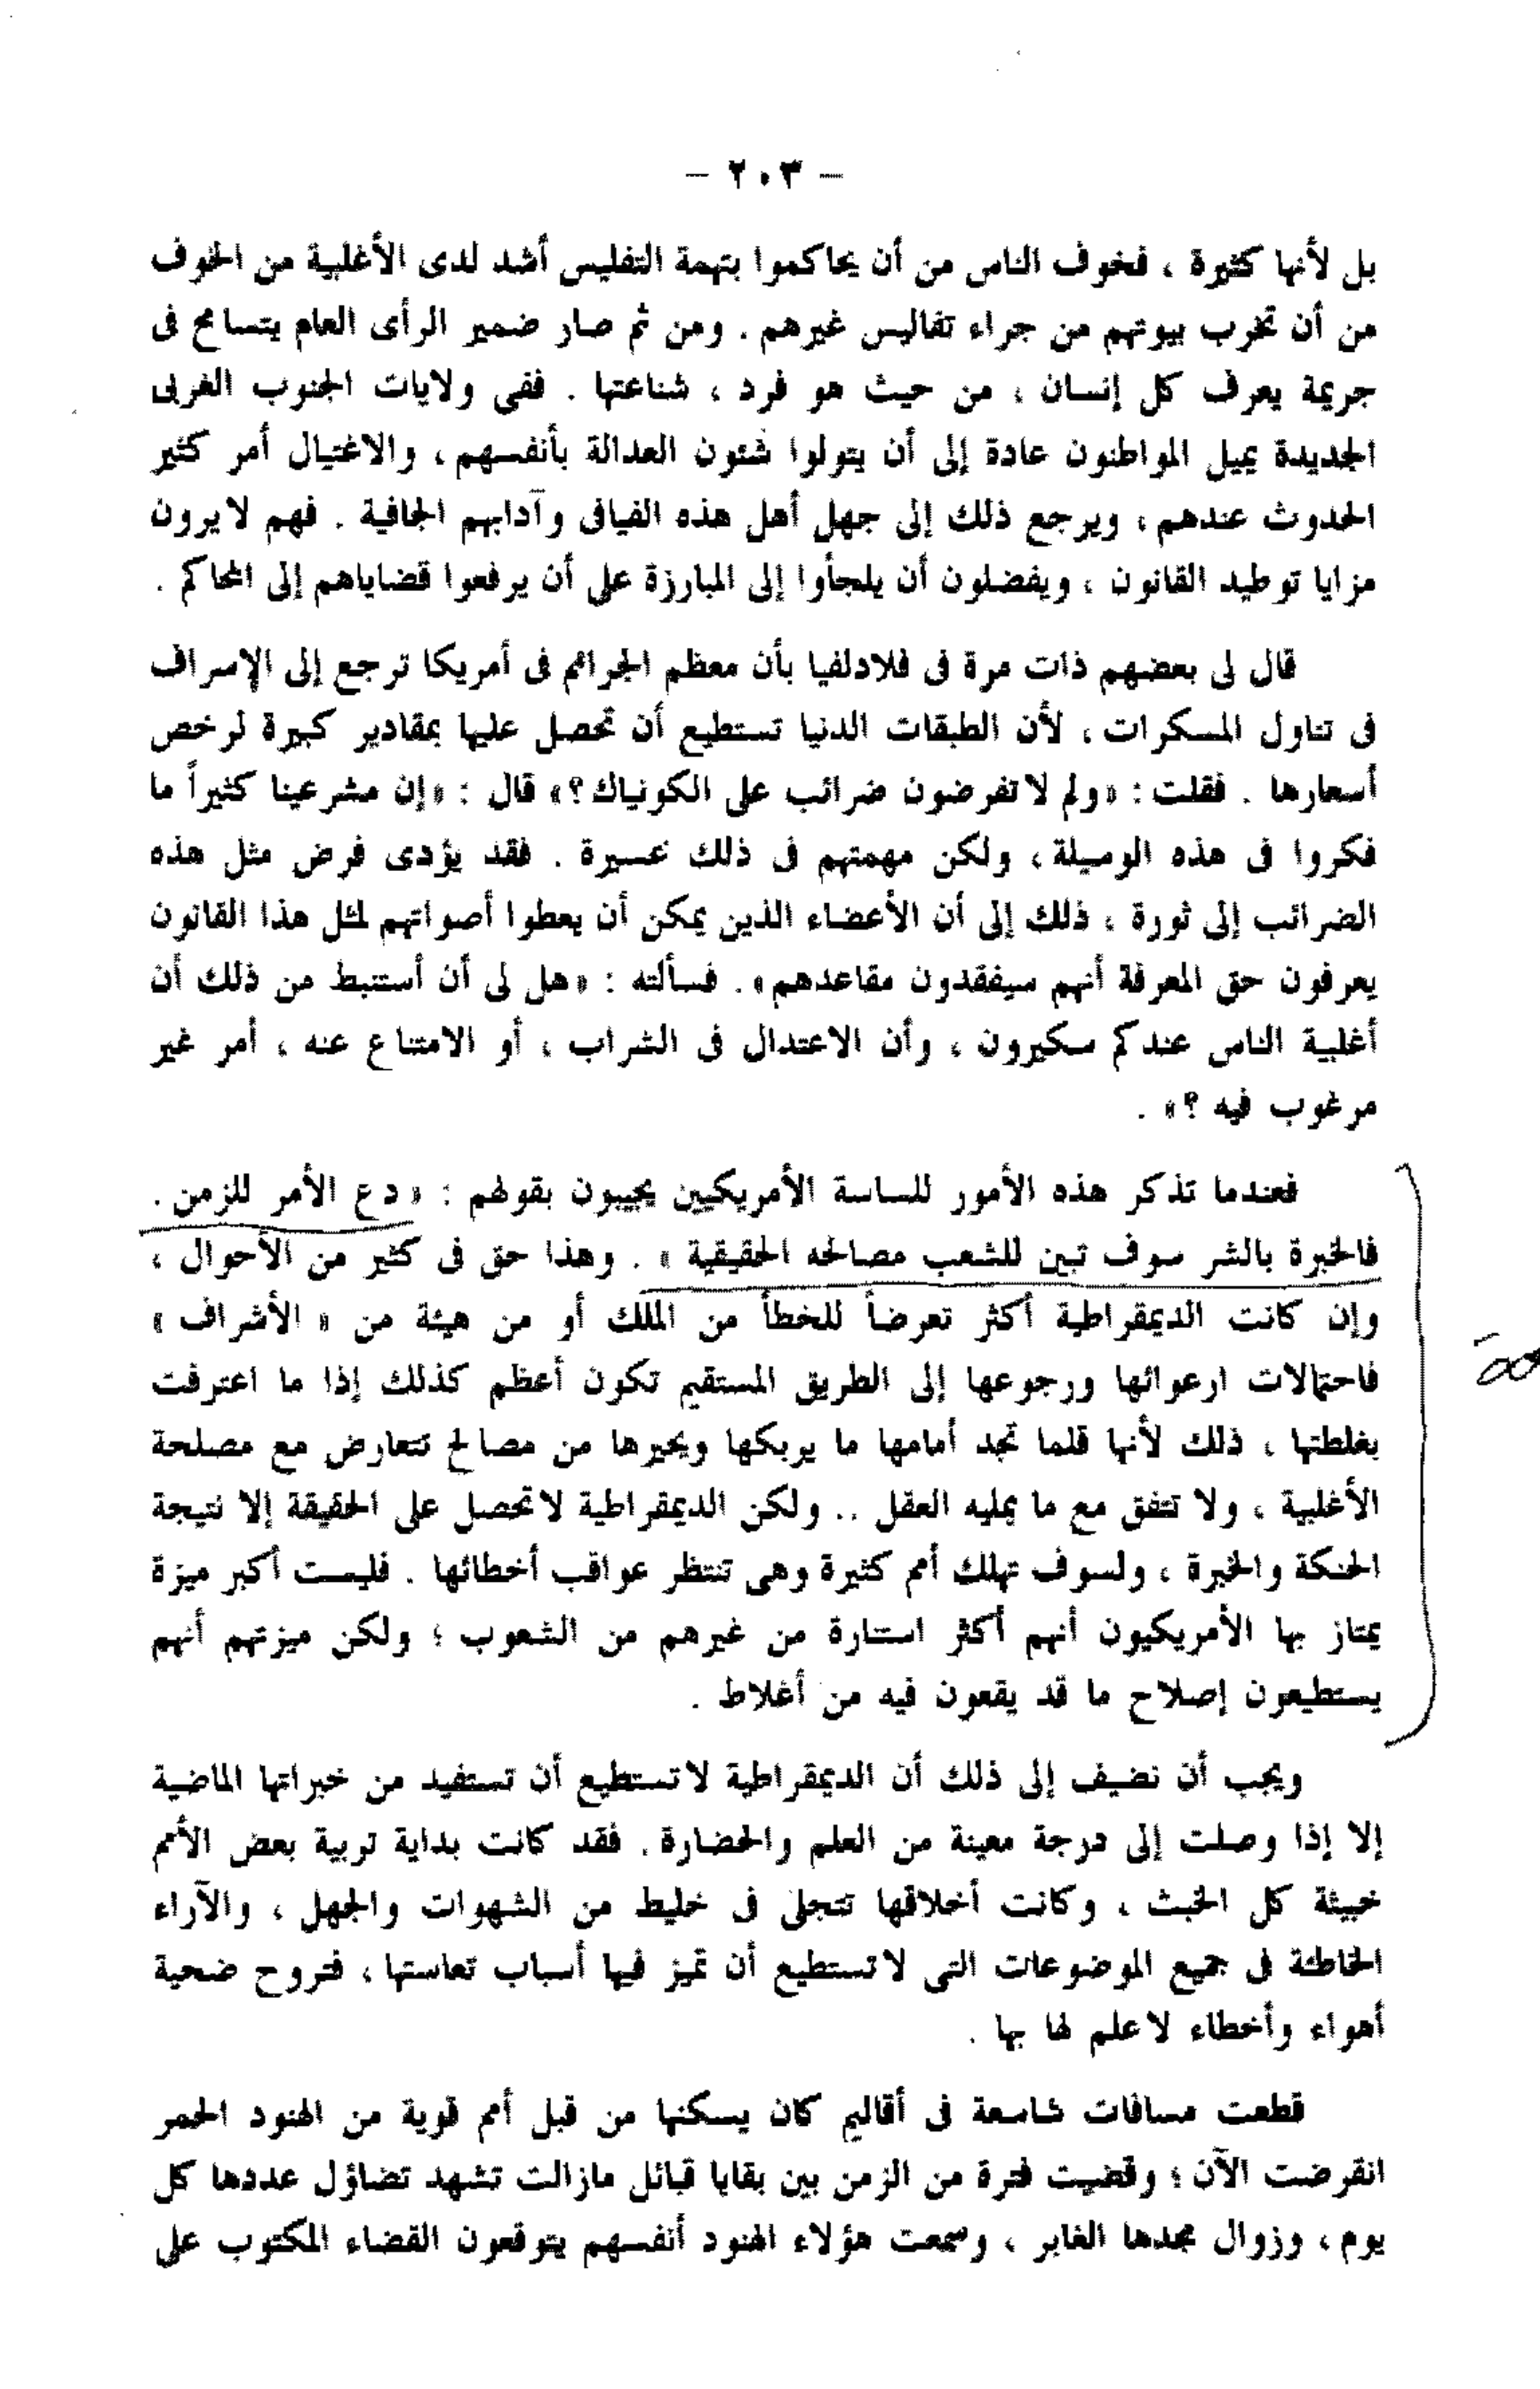 - ٢٠٣ -
بل لأنها كثيرة ، فخوف الناس من أن يحاكموا بتهمة التفليس أشد لدى الأغلبية من الخوف
من أن تخرب بيوتهم من جراء تفاليس غيرهم . ومن ثم صار ضمير الرأى العام يتسامح فى
جريمة يعرف كل إنسان ، من حيث هو فرد ، شناعتها . ففى ولايات الجنوب الغربى
الجديدة يميل المواطنون عادة إلى أن يتولوا شئون العدالة بأنفسهم ، والاغتيال أمر كثير
الحدوث عندهم ، ويرجع ذلك إلى جهل أهل هذه الفيافى وآدابهم الجافية . فهم لا يرون
مزايا توطيد القانون ، ويفضلون أن يلجأوا إلى المبارزة على أن يرفعوا قضاياهم إلى المحاكم .
قال لى بعضهم ذات مرة فى فلادلفيا بأن معظم الجرائم فى أمريكا ترجع إلى الإسراف
فى تناول المسكرات ، لأن الطبقات الدنيا تستطيع أن تحصل عليها بمقادير كبيرة لرخص
أسعارها . فقلت : «ولم لا تفرضون ضرائب على الكونياك؟» قال : «إن مشرعينا كثيراً ما
فكروا فى هذه الوسيلة ، ولكن مهمتهم فى ذلك عسيرة . فقد يؤدى فرض مثل هذه
الضرائب إلى ثورة ، ذلك إلى أن الأعضاء الذين يمكن أن يعطوا أصواتهم لمثل هذا القانون
يعرفون حق المعرفة أنهم سيفقدون مقاعدهم» . فسألته : «هل لى أن أستنبط من ذلك أن
أغلبية الناس عندكم سكيرون ، وأن الاعتدال فى الشراب ، أو الامتناع عنه ، أمر غير
مرغوب فيه ؟» .
فعندما تذكر هذه الأمور للساسة الأمريكيين يجيبون بقولهم : « دع الأمر للزمن .
فالخبرة بالشر سوف تبين للشعب مصالحه الحقيقية » . وهذا حق فى كثير من الأحوال ،
وإن كانت الديمقراطية أكثر تعرضاً للخطأ من الملك أو من هيئة من « الأشراف »
فاحتمالات ارعوائها ورجوعها إلى الطريق المستقيم تكون أعظم كذلك إذا ما اعترفت
بغلطتها ، ذلك لأنها قلما تجد أمامها ما يربكها ويحيرها من مصالح تتعارض مع مصلحة
الأغلبية ، ولا تتفق مع ما يمليه العقل .. ولكن الديمقراطية لا تحصل على الحقيقة إلا نتيجة
الحنكة والخبرة ، ولسوف تهلك أمم كثيرة وهى تنتظر عواقب أخطائها . فليست أكبر ميزة
يمتاز بها الأمريكيون أنهم أكثر استنارة من غيرهم من الشعوب ؛ ولكن ميزتهم أنهم
يستطيعون إصلاح ما قد يقعون فيه من أغلاط .
ويجب أن نضيف إلى ذلك أن الديمقراطية لا تستطيع أن تستفيد من خبراتها الماضية
إلا إذا وصلت إلى درجة معينة من العلم والحضارة . فقد كانت بداية تربية بعض الأمم
خبيثة كل الخبث ، وكانت أخلاقها تتجلى فى خليط من الشهوات والجهل ، والآراء
الخاطئة فى جميع الموضوعات التى لا تستطيع أن تميز فيها أسباب تعاستها ، فتروح ضحية
أهواء وأخطاء لا علم لها بها .
قطعت مسافات شاسعة فى أقاليم كان يسكنها من قبل أمم قوية من الهنود الحمر
انقرضت الآن ؛ وقضيت فترة من الزمن بين بقايا قبائل مازالت تشهد تضاؤل عددها كل
يوم ، وزوال مجدها الغابر ، وسمعت هؤلاء الهنود أنفسهم يتوقعون القضاء المكتوب على